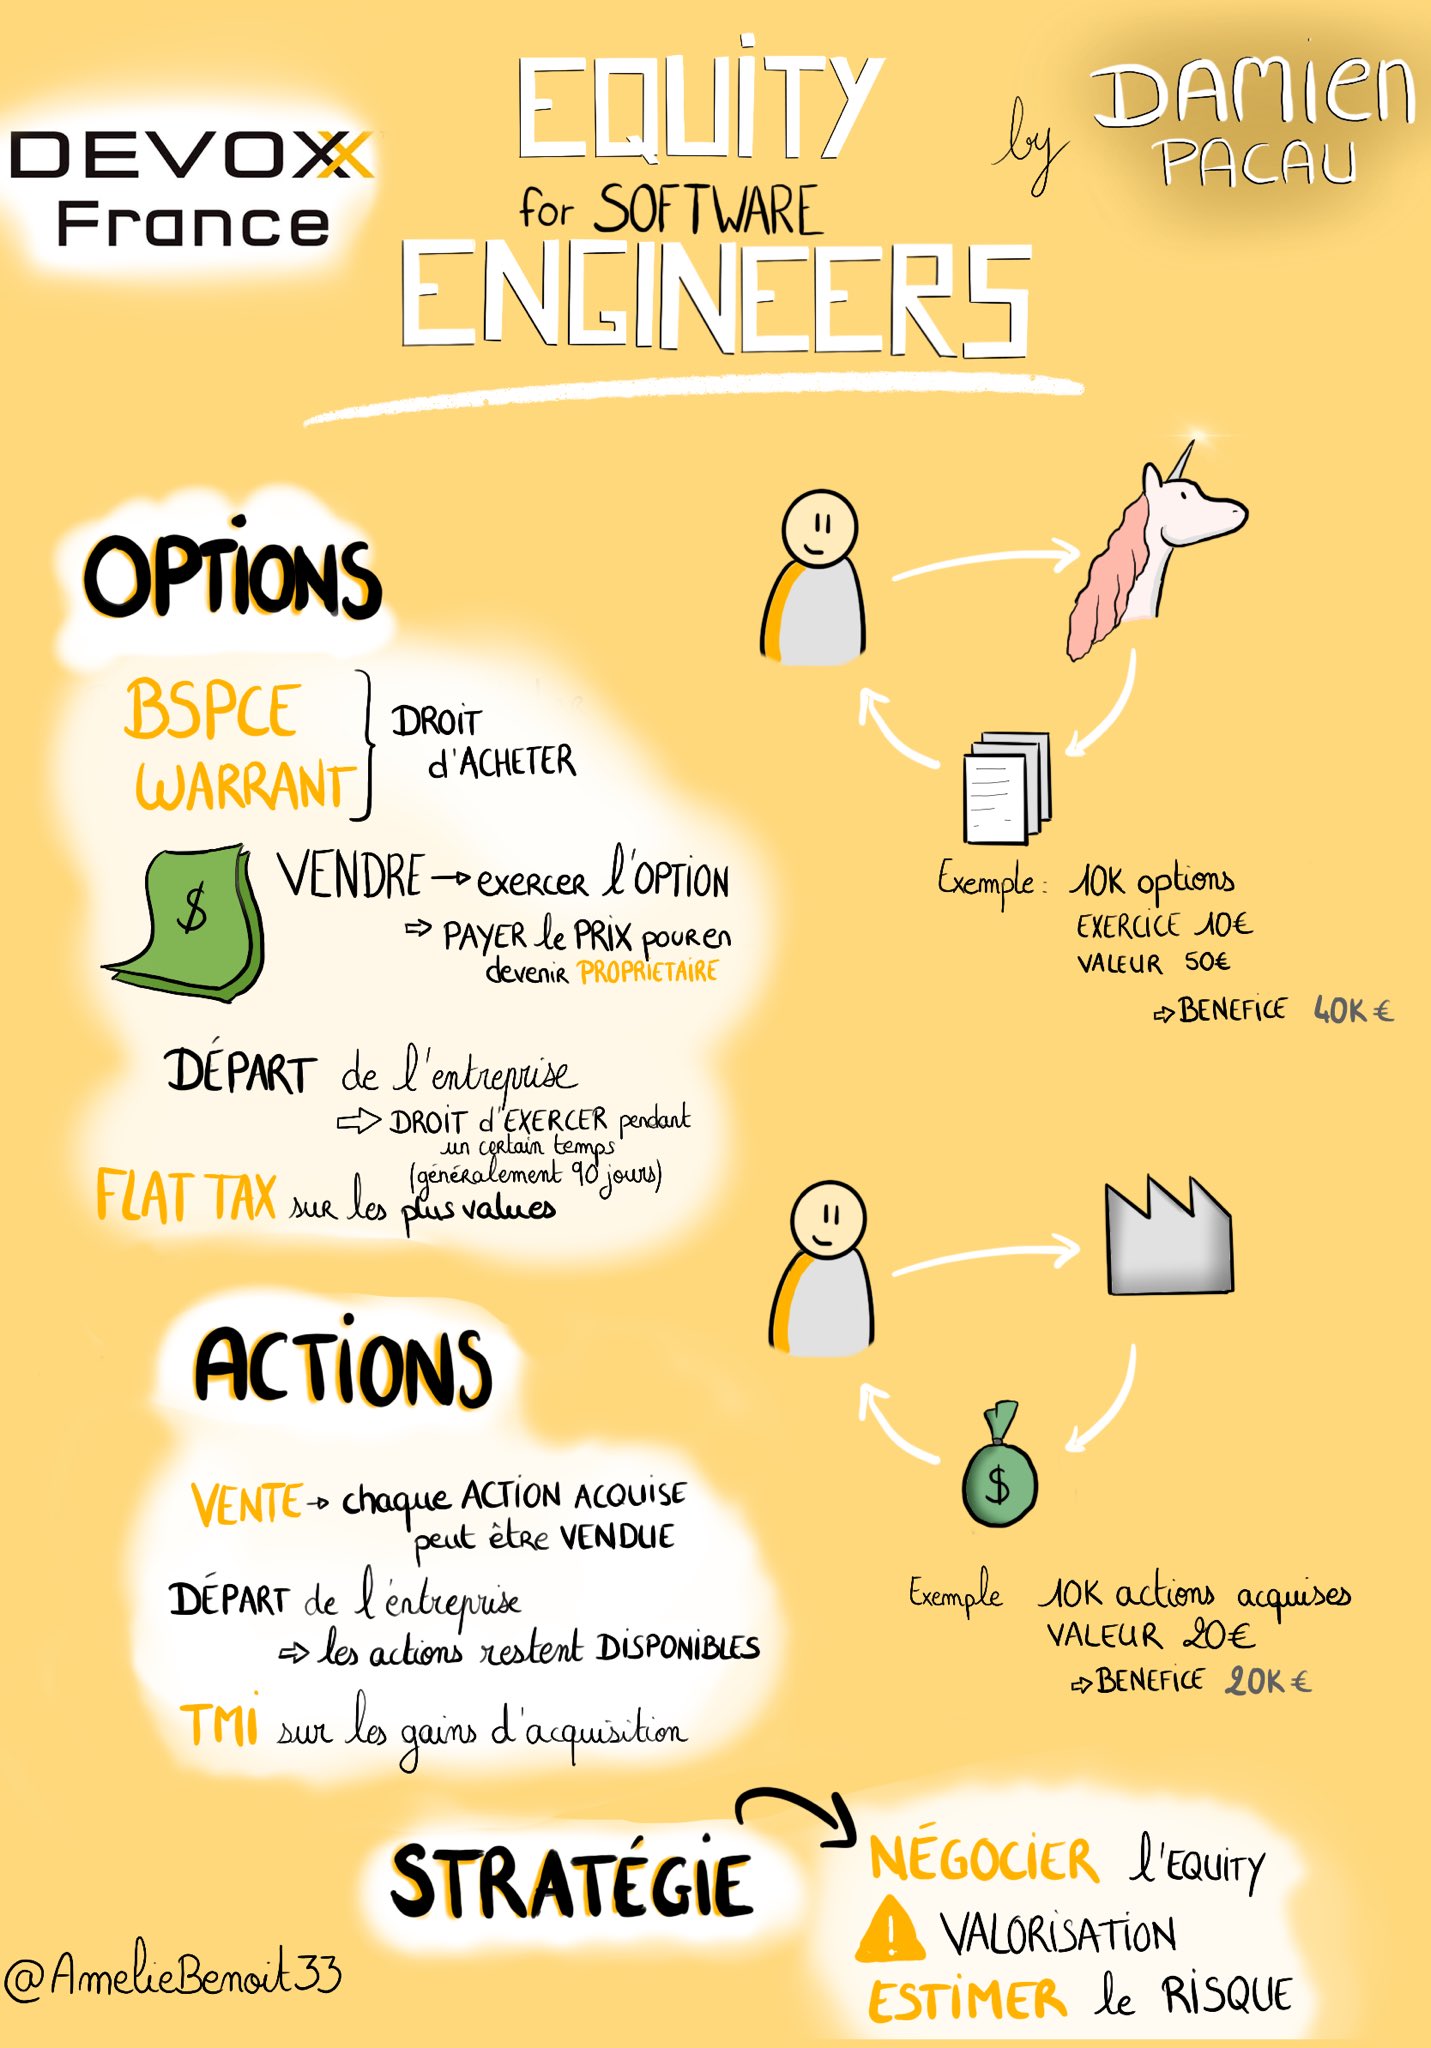 DEVOXX
France
EQUITY
for SOFTWARE
ENGINEERS
by DAMIEN
PACAU
OPTIONS
BSPCE
WARRANT
DROIT
d'ACHETER
$
VENDRE → exercer l'OPTION
⇨ PAYER le PRIX pour en
devenir PROPRIETAIRE
DÉPART de l'entreprise
⇨ DROIT d'EXERCER pendant
un certain temps
(généralement 90 jours)
FLAT TAX sur les plus values
Exemple : 10K options
EXERCICE 10€
VALEUR 50€
⇨ BENEFICE 40K €
ACTIONS
VENTE → chaque ACTION ACQUISE
peut être VENDUE
DÉPART de l'entreprise
⇨ les actions restent DISPONIBLES
TMI sur les gains d'acquisition
$
Exemple 10K actions acquises
VALEUR 20€
⇨ BENEFICE 20K €
STRATÉGIE
NÉGOCIER l'EQUITY
! VALORISATION
ESTIMER le RISQUE
@AmelieBenoit33